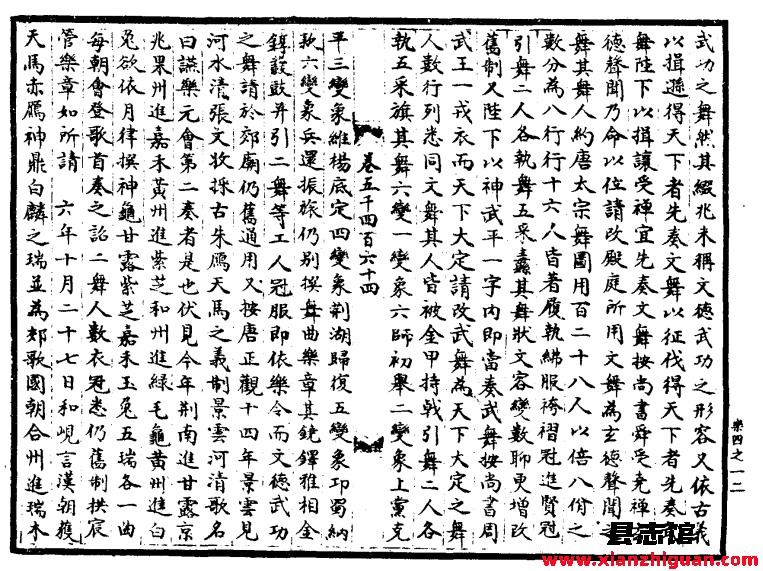 武功之舞然其綴兆未稱文德武功之形容又依古義
以揖遜得天下者先奏文舞以征伐得天下者先奏武
舞陛下以揖讓受禪宜先奏文舞按尚書舜受堯禪玄
德聲聞乃命以位請改殿庭所用文舞為玄德聲聞之
舞其舞人約唐太宗舞圖用百二十八人以倍八佾之
數分為八行行十六人皆著履執紼服袴褶冠進賢冠
引舞二人各執舞五采纛其舞狀文容變數聊更增改
舊制又陛下以神武平一宇內即當奏武舞按尚書周
武王一戎衣而天下大定請改武舞為天下大定之舞
人數行列悉同文舞其人皆被金甲持戟引舞二人各
執五采旗其舞六變一變象六師初舉二變象上黨克
卷五千四百六十四
平三變象維楊底定四變象荆湖歸復五變象卭蜀納
款六變象兵還振旅仍別撰舞曲樂章其鐃鐸雅相金
錞鼗鼓并引二舞等工人冠服即依樂令而文德武功
之舞請於郊廟仍舊通用又按唐正觀十四年景雲見
河水清張文收採古朱鴈天馬之義制景雲河清歌名
曰讌樂元會第二奏者是也伏見今年荆南進甘露京
兆果州進嘉禾黃州進紫芝和州進綠毛龜黃州進白
兔欲依月律撰神龜甘露紫芝嘉禾玉兔五瑞各一曲
每朝會登歌首奏之詔二舞人數衣冠悉仍舊制拱宸
管樂章如所請　六年十月二十七日和峴言漢朝獲
天馬赤鴈神鼎白麟之瑞並為郊歌國朝合州進瑞木
樂四之一二
县志馆
www.xianzhiguan.com